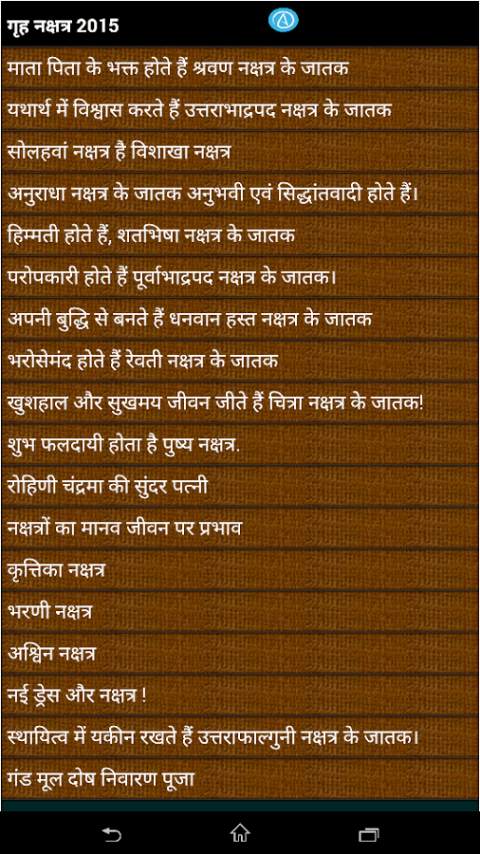 गृह नक्षत्र 2015
माता पिता के भक्त होते हैं श्रवण नक्षत्र के जातक
यथार्थ में विश्वास करते हैं उत्तराभाद्रपद नक्षत्र के जातक
सोलहवां नक्षत्र है विशाखा नक्षत्र
अनुराधा नक्षत्र के जातक अनुभवी एवं सिद्धांतवादी होते हैं।
हिम्मती होते हैं, शतभिषा नक्षत्र के जातक
परोपकारी होते हैं पूर्वाभाद्रपद नक्षत्र के जातक।
अपनी बुद्धि से बनते हैं धनवान हस्त नक्षत्र के जातक
भरोसेमंद होते हैं रेवती नक्षत्र के जातक
खुशहाल और सुखमय जीवन जीते हैं चित्रा नक्षत्र के जातक!
शुभ फलदायी होता है पुष्य नक्षत्र.
रोहिणी चंद्रमा की सुंदर पत्नी
नक्षत्रों का मानव जीवन पर प्रभाव
कृत्तिका नक्षत्र
भरणी नक्षत्र
अश्विन नक्षत्र
नई ड्रेस और नक्षत्र !
स्थायित्व में यकीन रखते हैं उत्तराफाल्गुनी नक्षत्र के जातक।
गंड मूल दोष निवारण पूजा